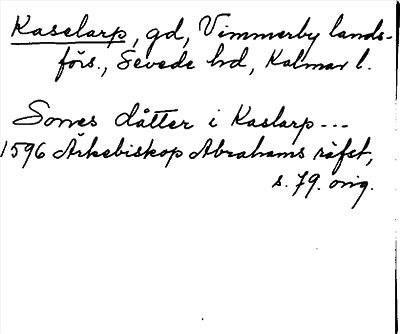 Kaselarp, gd, Vimmerby lands-
förs., Sevede hd, Kalmar l.
Sones dåtter i Kaslarp---
1596 Ärkebiskop Abrahams räfst,
s. 79. orig.